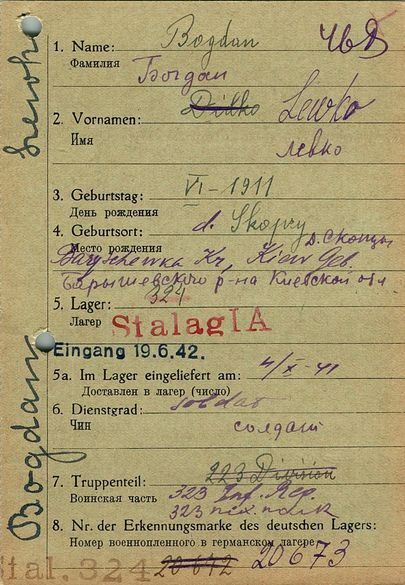 Lewko Bogdan
1. Name: Bogdan
Фамилия
Богдан
2. Vornamen: Lewko
Имя
левко
3. Geburtstag: VI-1911
День рождения
4. Geburtsort: d. Skopzy
Место рождения
д. Скопцы
Baryschewka Kr, Kiew Geb
Барышевского р-на Киевской обл
5. Lager: 324
Лагер
Stalag IA
Eingang 19.6.42.
5a. Im Lager eingeliefert am: 4/X-41
Доставлен в лагер (число)
6. Dienstgrad: soldat
Чин
солдат
7. Truppenteil: 223 Division
Воинская часть
323 Inf. Reg.
323 пех. полк
8. Nr. der Erkennungsmarke des deutschen Lagers:
Номер военнопленного в германском лагере
20642 20673
Stal. 324